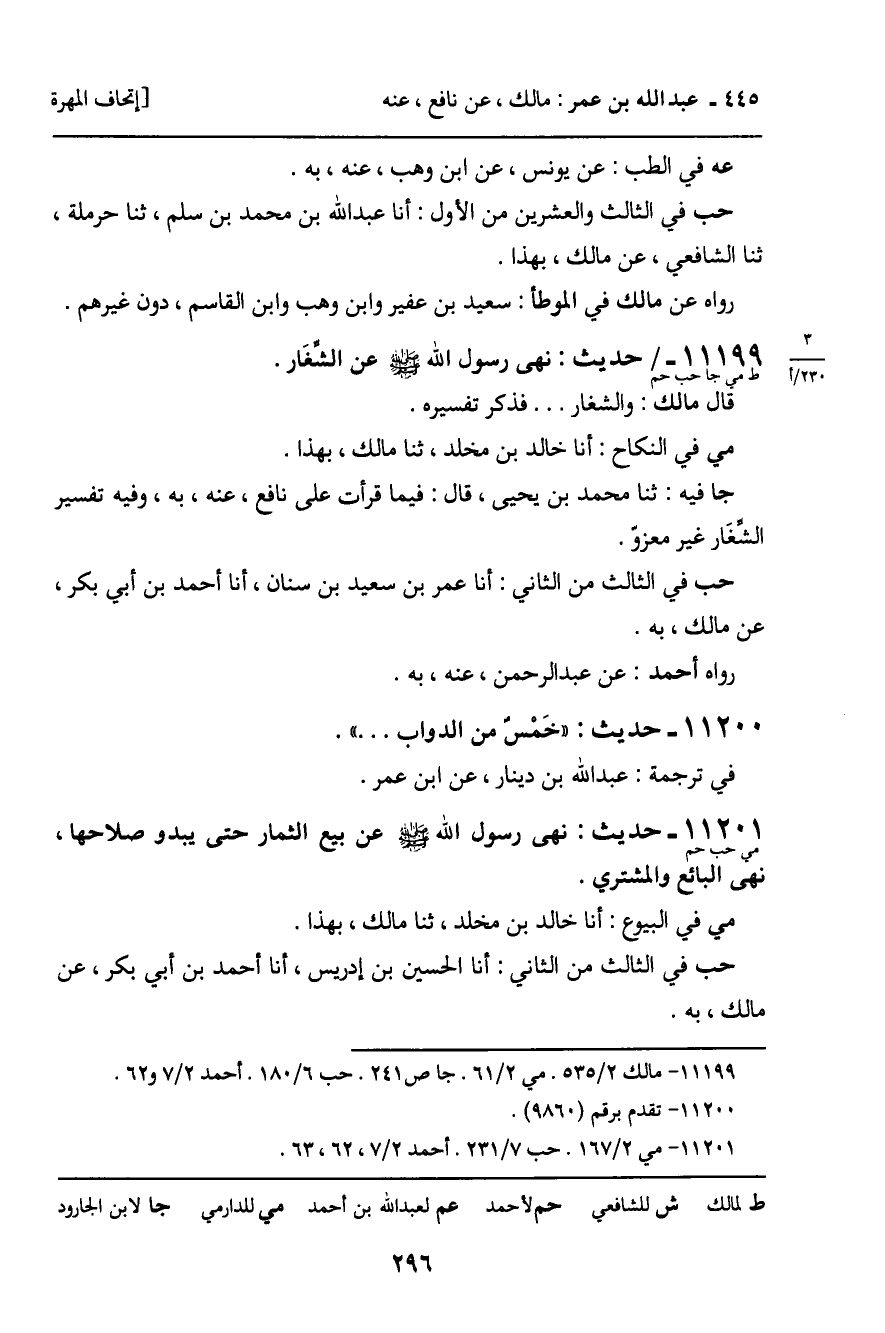 ٤٤٥ ـ عبدالله بن عمر : مالك ، عن نافع ، عنه [إتحاف المهرة
عه في الطب : عن يونس ، عن ابن وهب ، عنه ، به .
حب في الثالث والعشرين من الأول : أنا عبدالله بن محمد بن سلم ، ثنا حرملة ،
ثنا الشافعي ، عن مالك ، بهذا .
رواه عن مالك في الموطأ : سعيد بن عفير وابن وهب وابن القاسم ، دون غيرهم .
٣
٢٣٠/أ
١١١٩٩ـ/ حديث : نهى رسول الله ﷺ عن الشِّغَار .
ط مي جا حب حم
قال مالك : والشغار . . . فذكر تفسيره .
مي في النكاح : أنا خالد بن مخلد ، ثنا مالك ، بهذا .
جا فيه : ثنا محمد بن يحيى ، قال : فيما قرأت على نافع ، عنه ، به ، وفيه تفسير
الشِّغَار غير معزوّ .
حب في الثالث من الثاني : أنا عمر بن سعيد بن سنان ، أنا أحمد بن أبي بكر ،
عن مالك ، به .
رواه أحمد : عن عبدالرحمن ، عنه ، به .
١١٢٠٠ـ حديث : «خَمْسٌ من الدواب . . .» .
في ترجمة : عبدالله بن دينار ، عن ابن عمر .
١١٢٠١ـ حديث : نهى رسول الله ﷺ عن بيع الثمار حتى يبدو صلاحها ،
مي حب حم
نهى البائع والمشتري .
مي في البيوع : أنا خالد بن مخلد ، ثنا مالك ، بهذا .
حب في الثالث من الثاني : أنا الحسين بن إدريس ، أنا أحمد بن أبي بكر ، عن
مالك ، به .
١١١٩٩- مالك ٥٣٥/٢ . مي ٦١/٢ . جا ص٢٤١ . حب ١٨٠/٦ . أحمد ٧/٢ و٦٢ .
١١٢٠٠- تقدم برقم (٩٨٦٠) .
١١٢٠١- مي ١٦٧/٢ . حب ٢٣١/٧ . أحمد ٧/٢ ، ٦٢ ، ٦٣ .
ط لمالك ش للشافعي حم لأحمد عم لعبدالله بن أحمد مي للدارمي جا لابن الجارود
٢٩٦